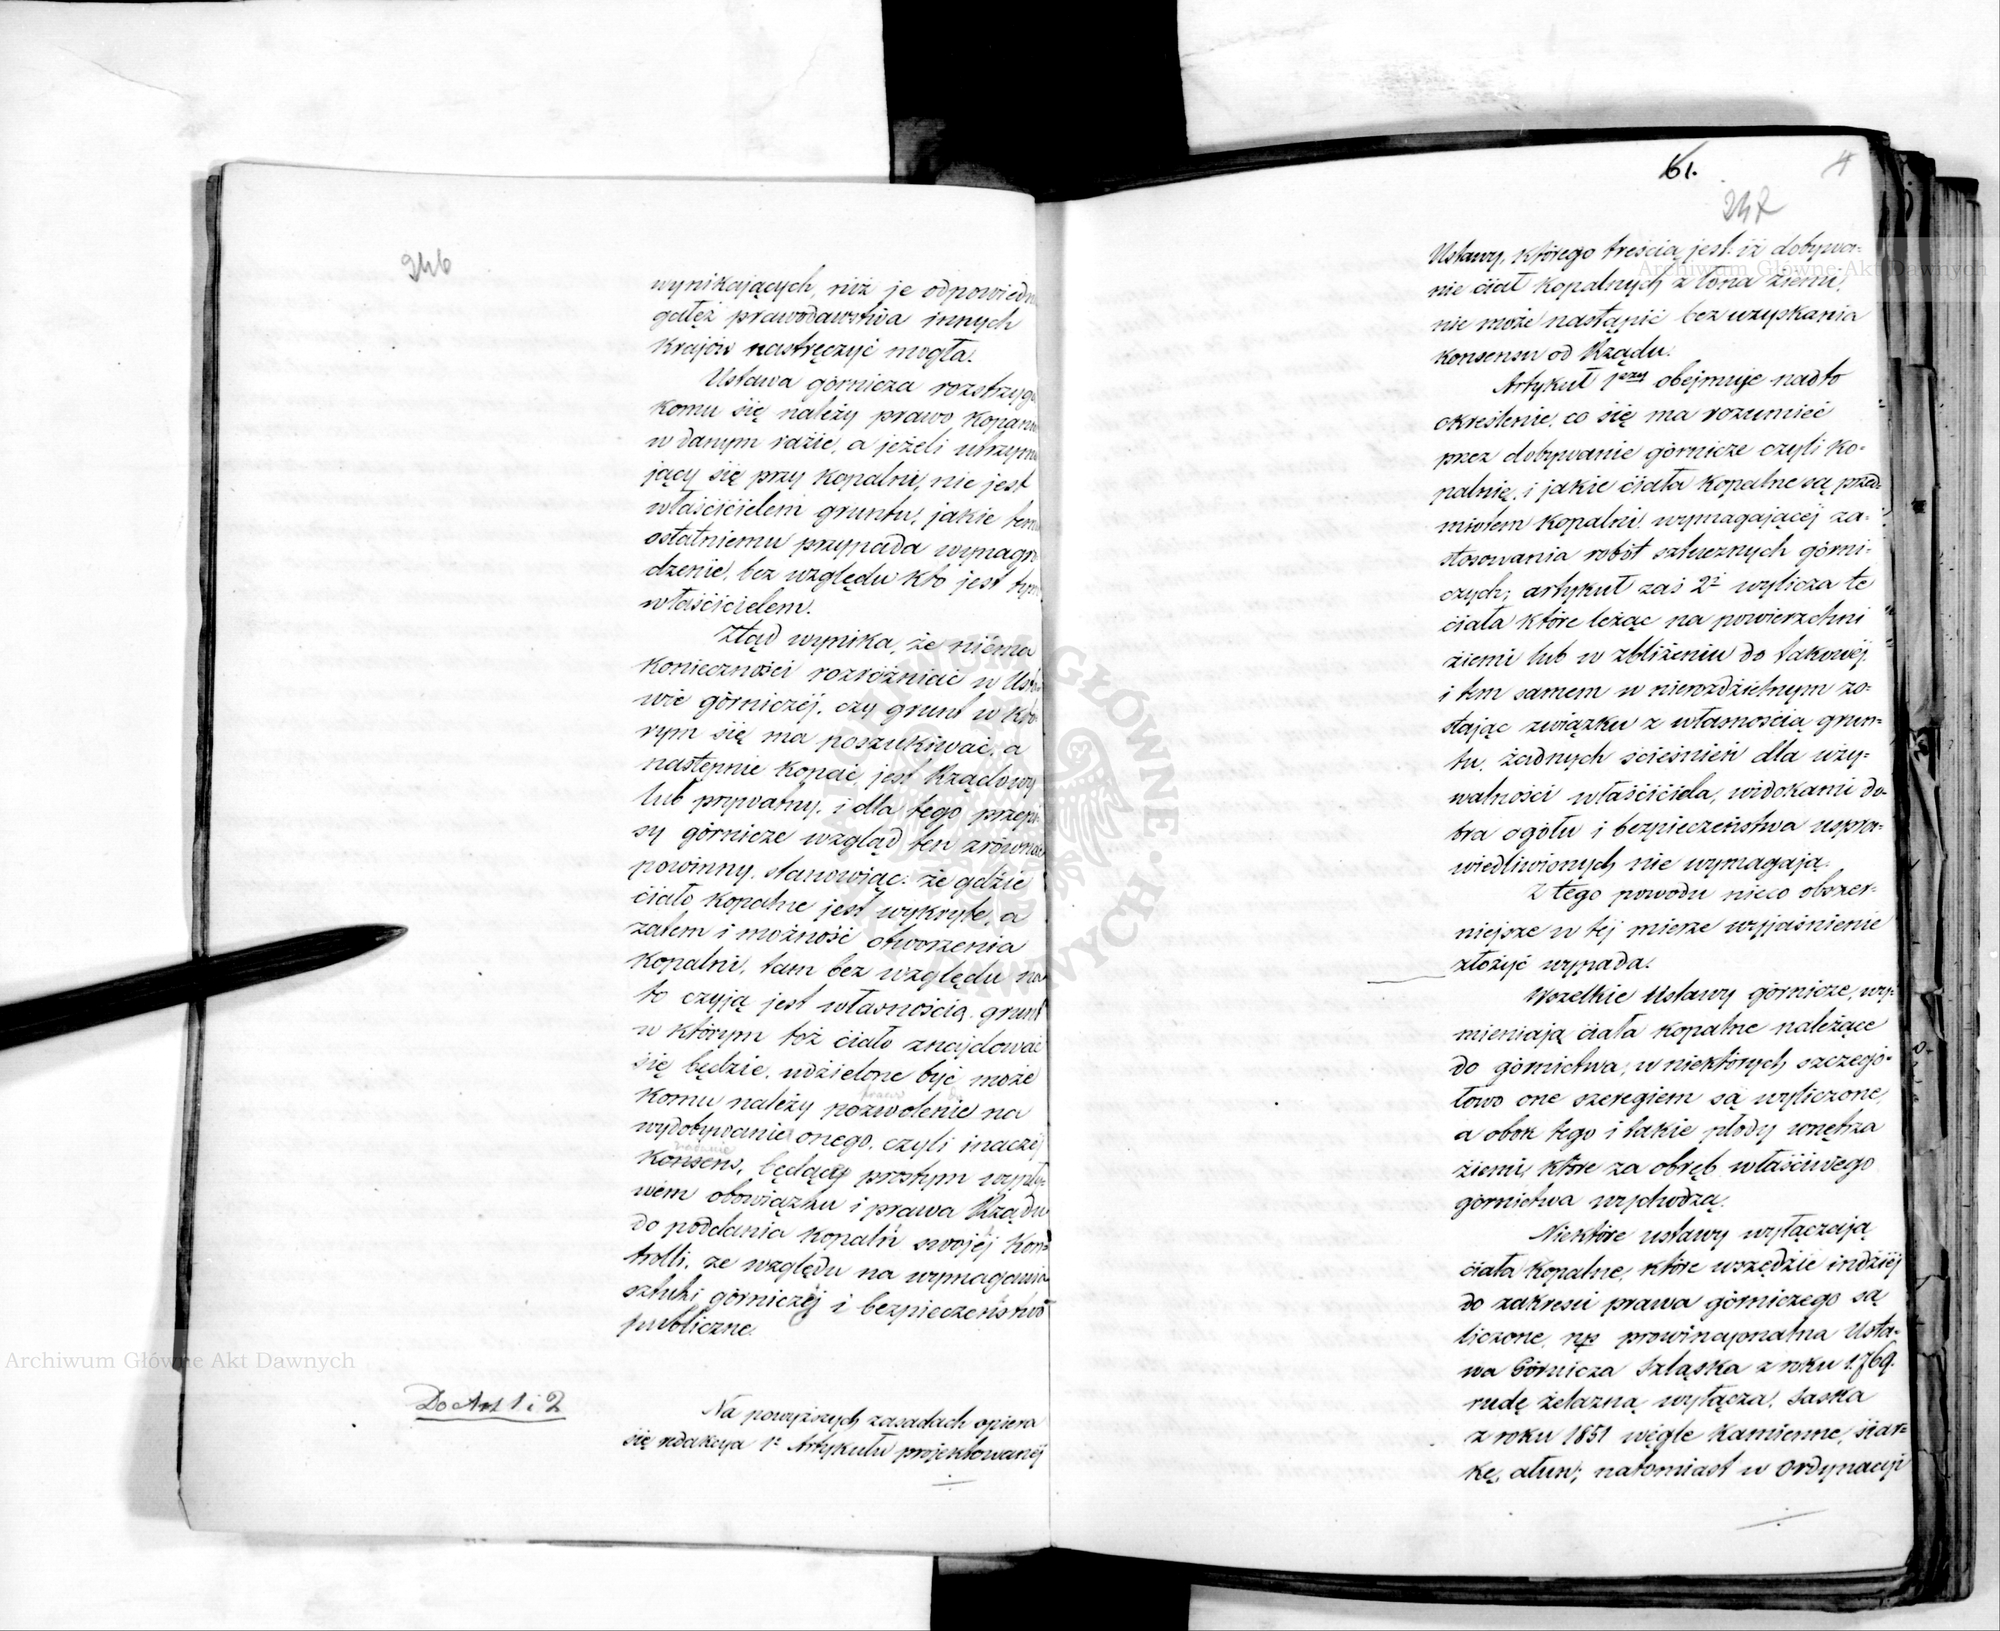 246
wynikających, niż je odpowiedn
gałęź prawodawstwa innych
krajów nastręczyć mogła.
Ustawa górnicza rozstrzyga
komu się należy prawo kopani
w danym razie, a jeżeli utrzymu
jący się przy kopalni, nie jest
właścicielem gruntu, jakie temu
ostatniemu przypada wynagro
dzenie, bez względu kto jest tym
właścicielem.
Ztąd wynika, że niéma
konieczności rozróżniać w Usta
wie górniczéj, czy grunt w któ
rym się ma poszukiwać, a
następnie kopać, jest Rządowy
lub prywatny, i dla tego przepi
sy górnicze wzgląd ten zrównać
powinny, stanowiąc: że gdzie
ciało kopalne jest wykryte, a
zatem i możność otworzenia
kopalni, tam bez względu na
to czyją jest własnością grunt
w którym toż ciało znajdować
się będzie, udzielone być może
komu należy pozwolenie na
wydobywanie onego, czyli inaczéj
Konsens, będący prostym wypły-
wem obowiązku i prawa Rządu
do poddania kopalń swojéj Kon-
trolli, ze względu na wymagania
sztuki górniczéj i bezpieczeństwo
publiczne.
Do Art 1 i 2
Na powyższych zasadach opiera
się redakcya 1º Artykułu projektowanéj
61.
4
247
Ustawy, którego treścią jest: iż dobywa-
nie ciał kopalnych z łona ziemi,
nie może nastąpić bez uzyskania
konsensu od Rządu.
Artykuł 1wszy obejmuje nadto
określenie, co się ma rozumieć
przez dobywanie górnicze czyli ko-
palnię, i jakie ciała kopalne są przed-
miotem kopalni, wymagającéj za-
stosowania robót sztucznych górni-
czych; artykuł zaś 2i wylicza te
ciała które leżąc na powierzchni
ziemi lub w zbliżeniu do takowéj,
i tém samem w nierozdzielnym zo-
stając związku z własnością grun-
tu, żadnych ścieśnień dla uży-
walności właściciela, widokami do-
bra ogółu i bezpieczeństwa uspra-
wiedliwionych nie wymagają.
Z tego powodu nieco obszer-
niejsze w téj mierze wyjaśnienie
złożyć wypada.
Wszelkie Ustawy górnicze, wy-
mieniają ciała kopalne należące
do górnictwa, w niektórych szczegó-
łowo one szeregiem są wyliczone,
a obok tego i takie płody wnętrza
ziemi, które za obręb właściwego
górnictwa wychodzą.
Niektóre ustawy wyłączają
ciała kopalne, które wszędzie indziéj
do zakresu prawa górniczego są
liczone, np prowincyonalna Usta-
wa Górnicza Szląska z roku 1769.
rudę żelazną wyłącza, Saska
z roku 1851 węgle kamienne, siar-
kę, ałun; natomiast w Ordynacyi
Archiwum Główne Akt Dawnych
Archiwum Główne Akt Dawnych
ARCHIWUM GŁÓWNE AKT DAWNYCH